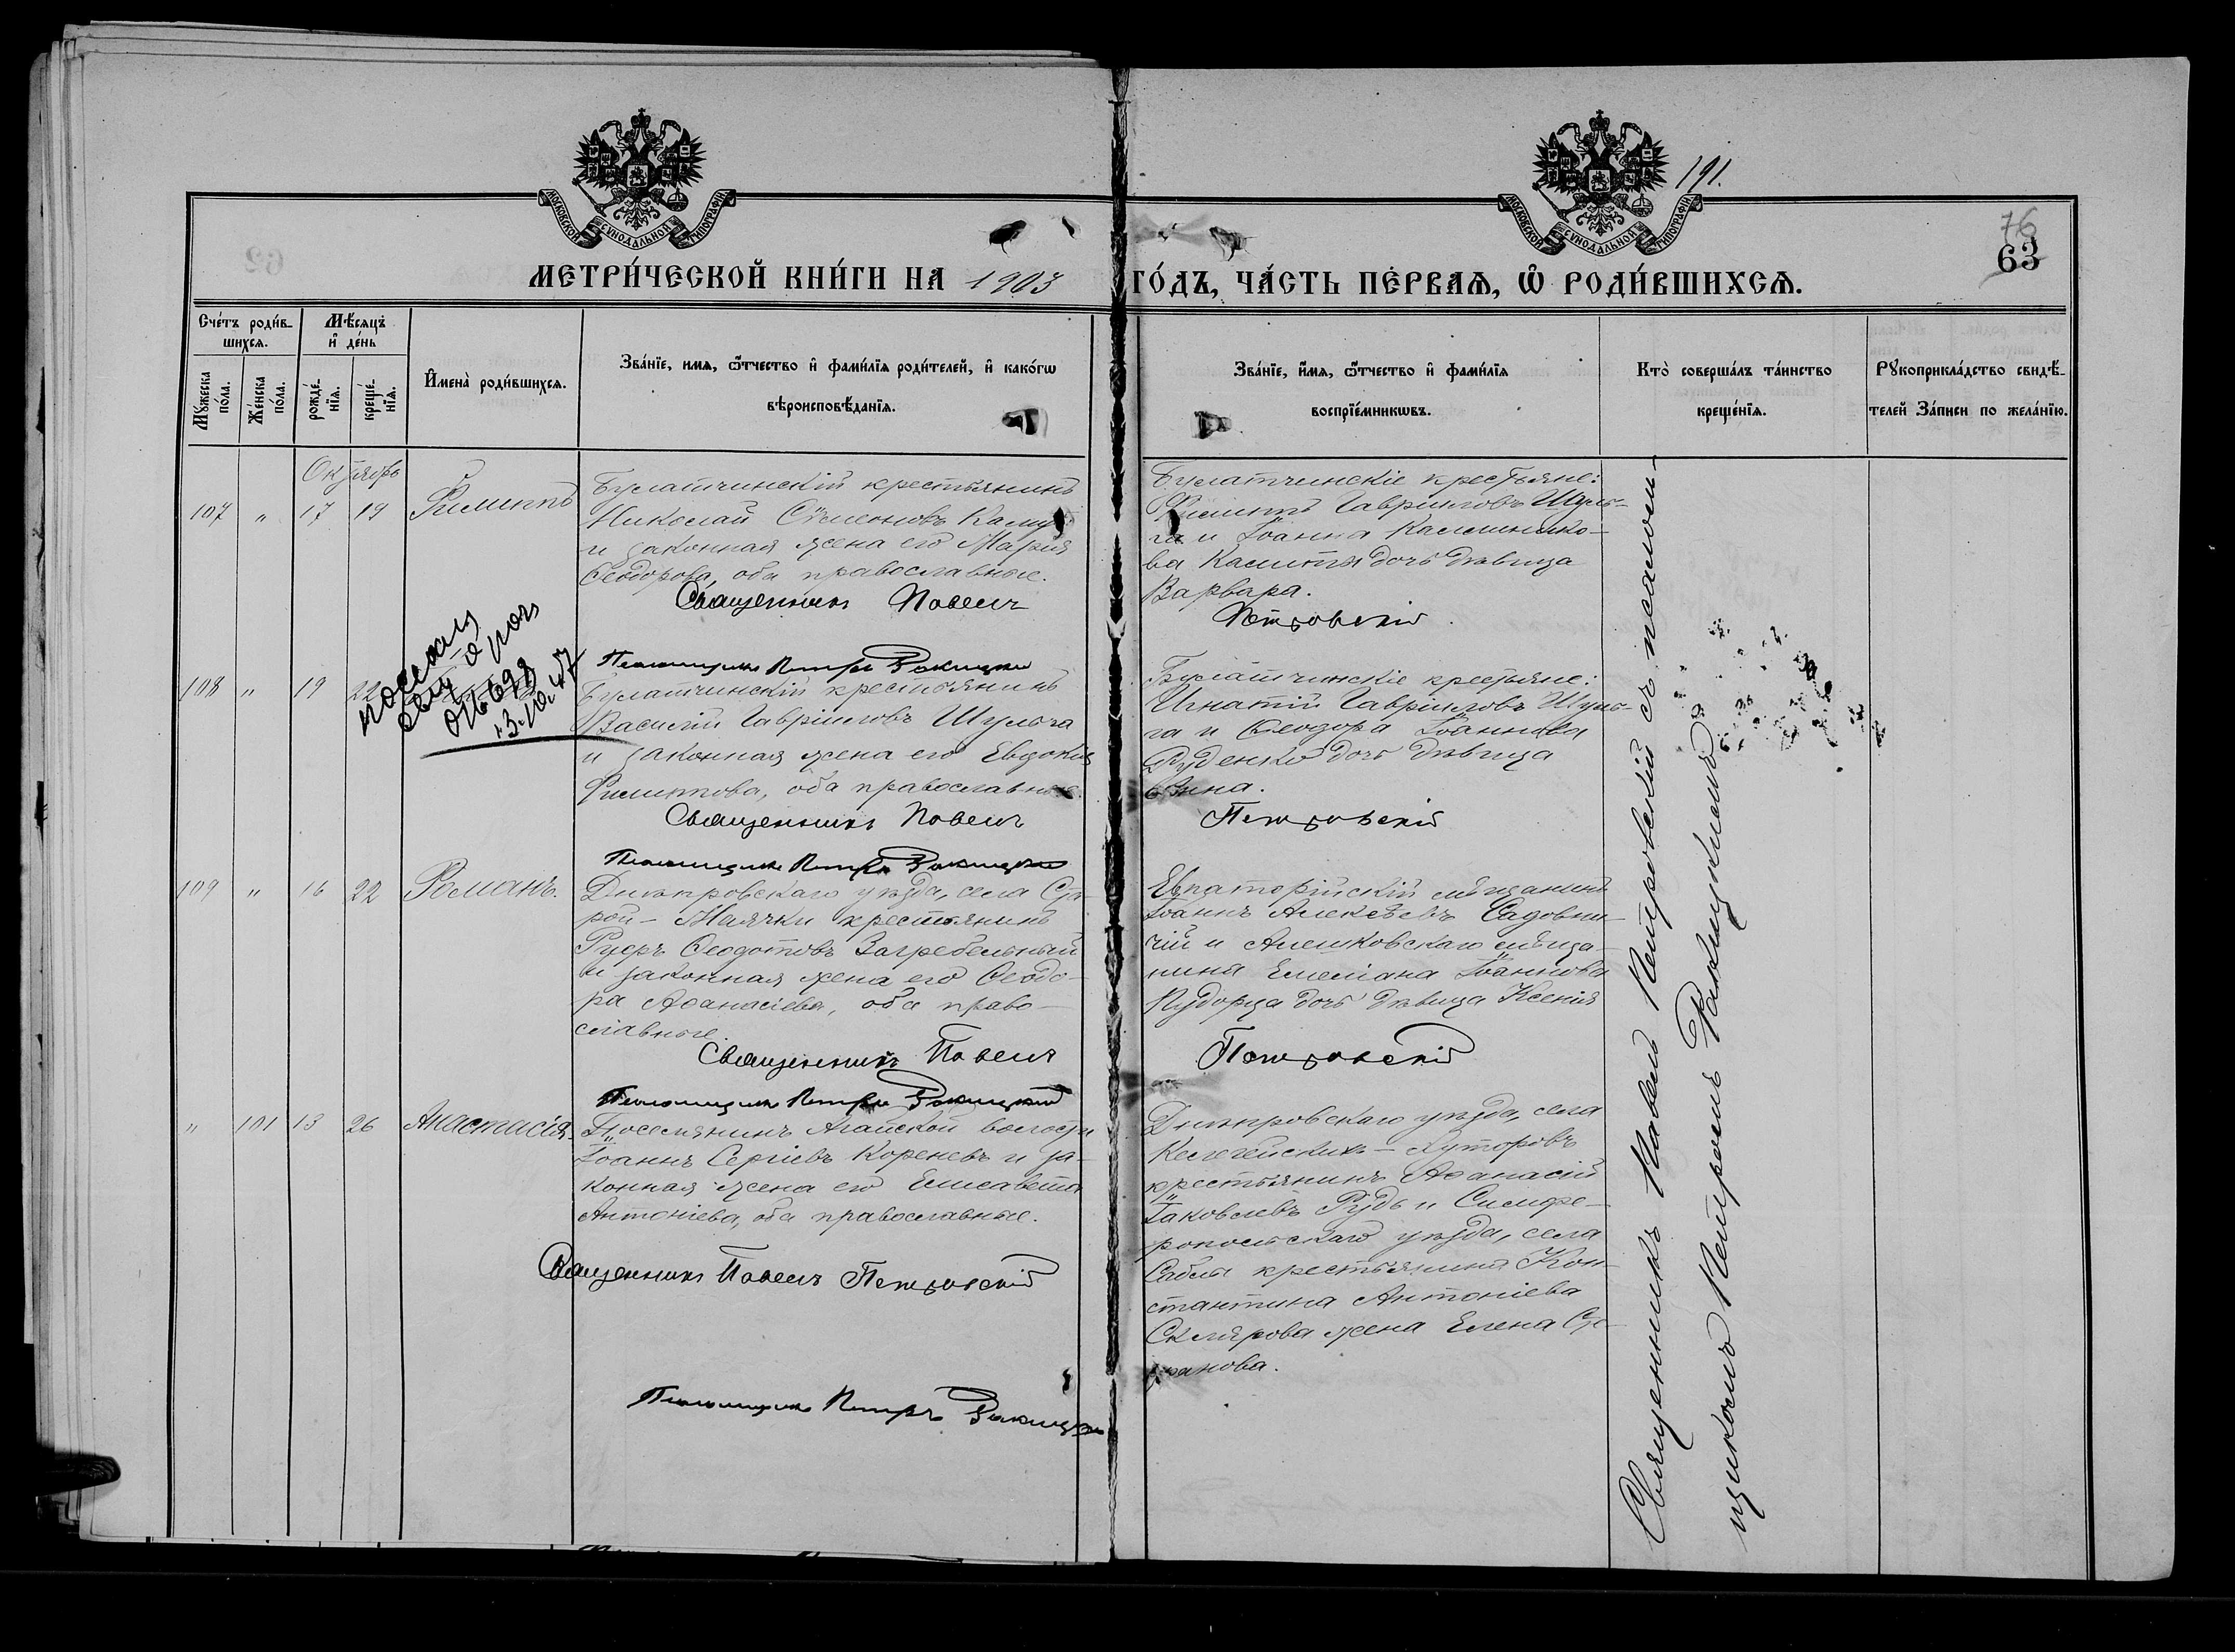 МОСКОВСКОЙ СѴНОДАЛЬНОЙ ТИПОГРАФІИ
МОСКОВСКОЙ СѴНОДАЛЬНОЙ ТИПОГРАФІИ
191.
76
63
МЕТРИ́ЧЕСКОЙ КНИ́ГИ НА 1903 ГО́ДЪ, ЧА́СТЬ ПЕ́РВАѦ, Ѡ҆ РОДИ́ВШИХСѦ.
Сче́тъ роди́в-
шихсѧ.
Мѣ́сѧцъ
и҆ де́нь
Мꙋ́жеска
по́ла.
Же́нска
по́ла.
рожде́-
нїѧ.
креще́-
нїѧ.
И҆мена̀ роди́вшихсѧ.
Зва́нїе, имѧ, ѻ҆́тчество и҆ фами́лїѧ роди́телей, и҆ како́гѡ
вѣроисповѣ́данїѧ.
Зва́нїе, и҆́мѧ, ѻ҆́тчество и҆ фами́лїѧ
воспрїе́мникѡвъ.
Кто̀ соверша́лъ та́инство
креще́нїѧ.
Рꙋкоприкла́дство свидѣ́-
телей За́писи по жела́нїю.
Октябрь
107 " 17 19 Филиппъ
Булатчинскій крестьянинъ
Николай Сѷменовъ
и законная жена его Марія
Ѳеодорова, оба православные.
Священникъ Павелъ
Псаломщикъ Петръ Ракицкій
Булатчинскіе крестьяне:
Филиппъ Гавріиловъ Шуль-
га и Іоанна Каллинико-
ва дочь дѣвица
Варвара.
Петровскій
108 " 19 22
13.10.47
Булатчинскій крестьянинъ
Василій Гавріиловъ Шульга
и законная жена его Евдокія
Филиппова, оба православные.
Священникъ Павелъ
Псаломщикъ Петръ Ракицкій
Булатчинскіе крестьяне:
Игнатій Гавріиловъ Шуль-
га и Ѳеодора Іоаннова
Руденко дочь дѣвица
Анна.
Петровскій
109 " 16 22 Романъ.
Днѣпровскаго уѣзда, села Ста-
рой-Маячки крестьянинъ
Ѳеодотовъ Загребельный
и законная жена его Ѳеодо-
ра Аѳанасіева, оба право-
славные.
Священникъ Павелъ
Псаломщикъ Петръ Ракицкій
Евпаторійскій мѣщанинъ
Іоаннъ Алексѣевъ Садовни-
чій и Алешковскаго мѣща-
нина Емеліана Іоаннова
дочь дѣвица Ксенія
Петровскій
" 101 13 26 Анастасія.
Поселянинъ Агайской волости
Іоаннъ Сергіевъ Кореневъ и за-
конная жена его Елисавета
Антоніева, оба православные.
Священникъ Павелъ Петровскій
Псаломщикъ Петръ Ракицкій
Днѣпровскаго уѣзда, села
Келегейскихъ-Хуторовъ
крестьянинъ Аѳанасій
Іаковлевъ Рудь и Симфе-
ропольскаго уѣзда, села
Саблы крестьянина Кон-
стантина Антоніева
Склярова жена Елена Сте-
фанова.
Священникъ Павелъ Петровскій съ псалом-
щикомъ Петромъ Ракицкимъ